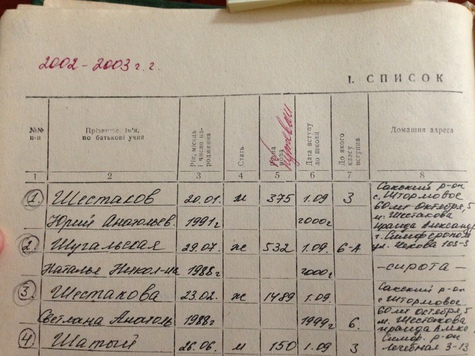 2002-2003 г.г.
I. СПИСОК
№№ п-п
Прізвище, ім'я, по батькові учня
Рік, місяць число народження
Стать
Дата вступу до школи
До якого класу вступив
Домашня адреса
1 2 3 4 5 6 7 8
1. Шестаков 20.01. м 375 1.09 3 Сакский р-он
с. Штормовое
60 лет Октября, 5
Юрий Анатольев. 1991г 2000г м. Шестакова
2. Шугальская 29.07. ж 532 1.09. 6-А
ул. Чехова
Наталья Никол-на 1988г 2000г. -сирота-
3. Шестакова 23.02. ж 1489 1.09. Сакский р-он
с. Штормовое
60 лет октября, 5
Светлана Анатоль 1988г 1999г 6. м. Шестакова
4. Шатый 26.06. м 150 1.09 3 Симф. р-он